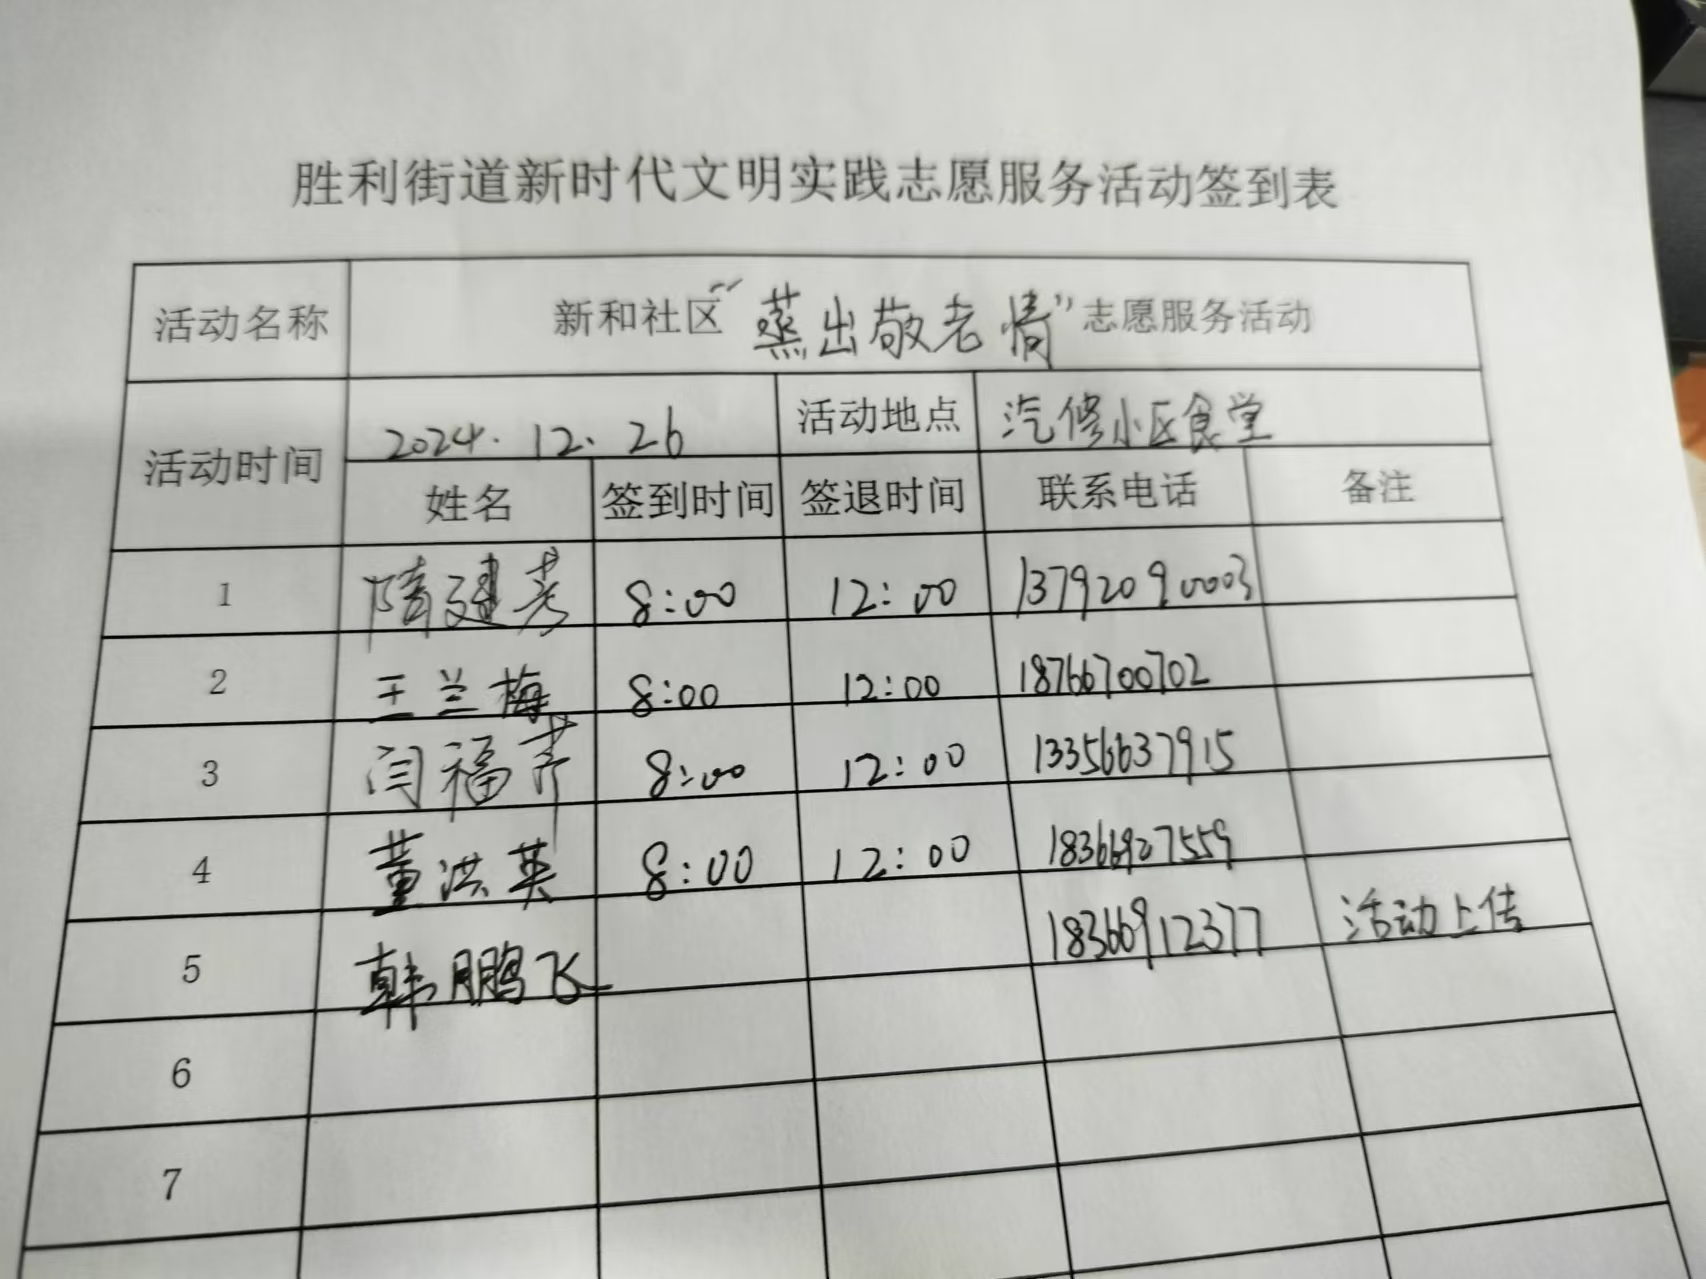 胜利街道新时代文明实践志愿服务活动签到表
活动名称 新和社区“蒸出敬老情”志愿服务活动
活动时间 2024.12.26 活动地点 汽修小区食堂
姓名 签到时间 签退时间 联系电话 备注
1 隋建芳 8:00 12:00 13792090003
2 王兰梅 8:00 12:00 18766700702
3 闫福芹 8:00 12:00 13356637915
4 董洪英 8:00 12:00 18366927559
5 韩鹏飞 18366912377 活动上传
6
7